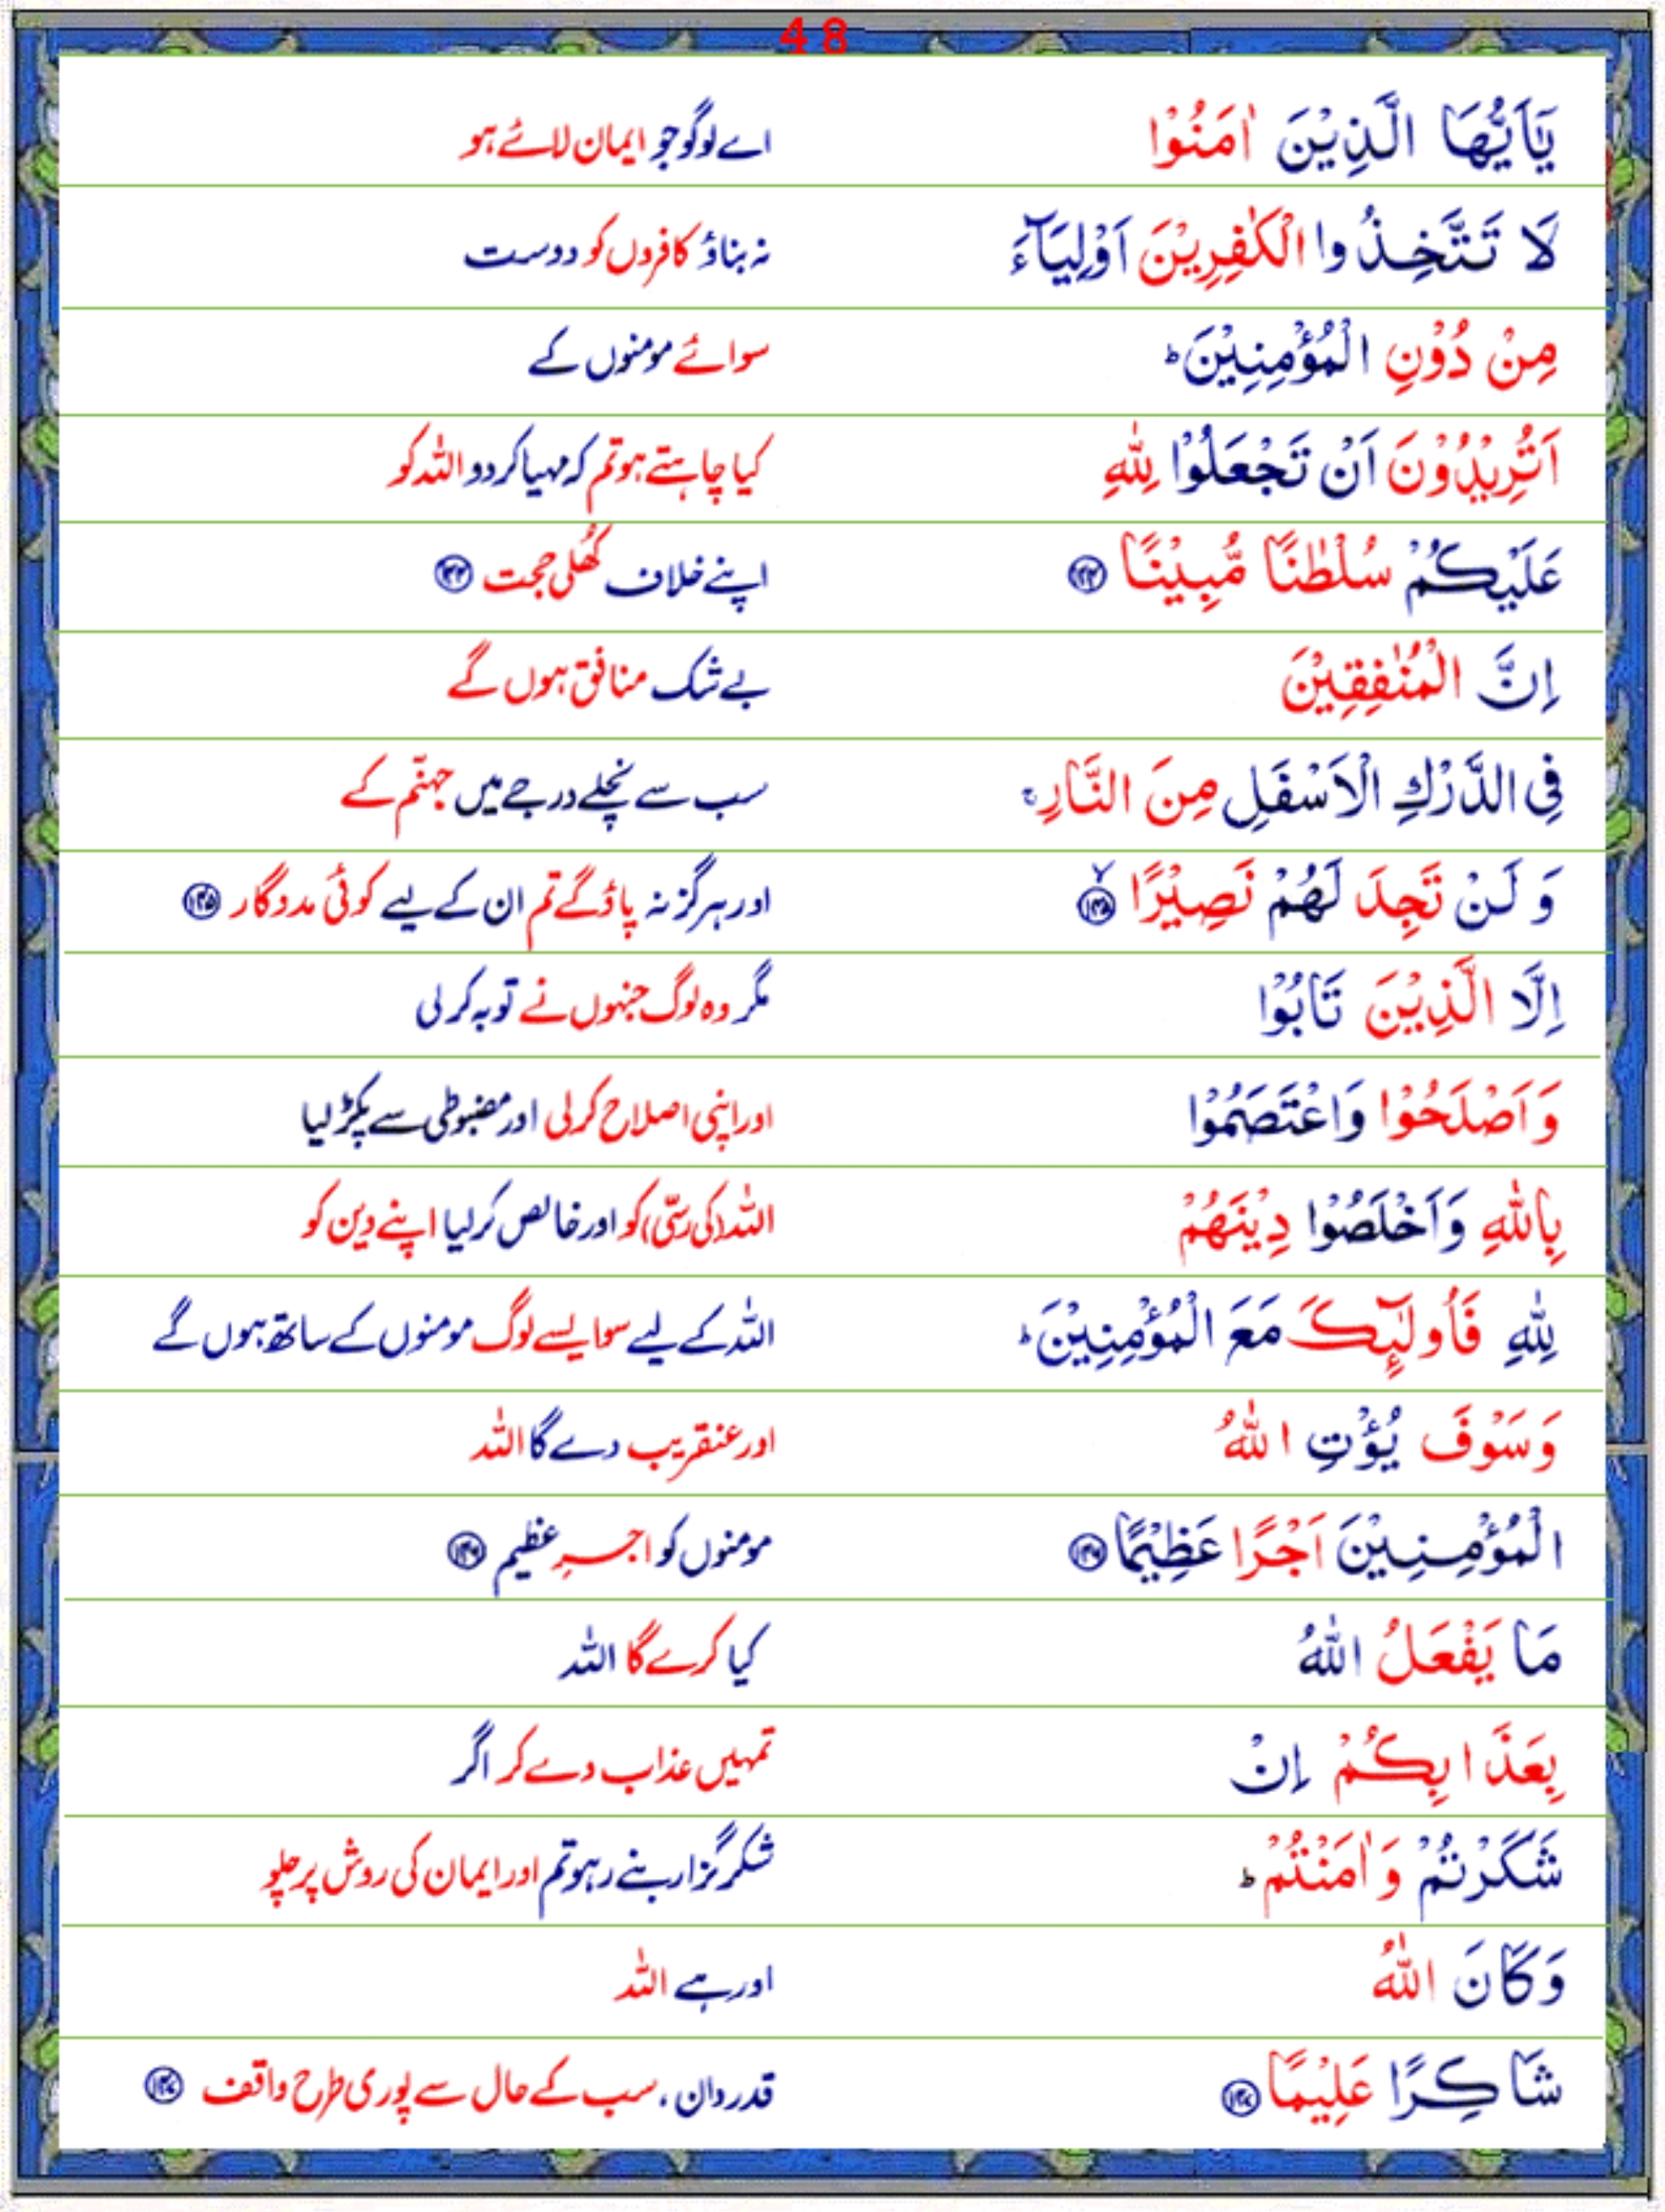 48
يٰٓاَيُّهَا الَّذِيْنَ اٰمَنُوْا اے لوگو جو ایمان لائے ہو
لَا تَتَّخِذُوا الْكٰفِرِيْنَ اَوْلِيَآءَ نہ بناؤ کافروں کو دوست
مِنْ دُوْنِ الْمُؤْمِنِيْنَ ؕ سوائے مومنوں کے
اَتُرِيْدُوْنَ اَنْ تَجْعَلُوْا لِلّٰهِ کیا چاہتے ہو تم کہ مہیا کردو اللہ کو
عَلَيْكُمْ سُلْطٰنًا مُّبِيْنًا ۝۱۴۴ اپنے خلاف کُھلی حجت ۝۱۴۴
اِنَّ الْمُنٰفِقِيْنَ بے شک منافق ہوں گے
فِى الدَّرْكِ الْاَسْفَلِ مِنَ النَّارِ ۚ سب سے نچلے درجے میں جہنّم کے
وَ لَنْ تَجِدَ لَهُمْ نَصِيْرًا ۝۱۴۵ۙ اور ہرگز نہ پاؤ گے تم ان کے لیے کوئی مددگار ۝۱۴۵
اِلَّا الَّذِيْنَ تَابُوْا مگر وہ لوگ جنہوں نے توبہ کرلی
وَاَصْلَحُوْا وَاعْتَصَمُوْا اور اپنی اصلاح کرلی اور مضبوطی سے پکڑ لیا
بِاللّٰهِ وَاَخْلَصُوْا دِيْنَهُمْ اللہ (کی رسّی) کو اور خالص کرلیا اپنے دین کو
لِلّٰهِ فَاُولٰٓئِكَ مَعَ الْمُؤْمِنِيْنَ ؕ اللہ کے لیے سو ایسے لوگ مومنوں کے ساتھ ہوں گے
وَسَوْفَ يُؤْتِ اللّٰهُ اور عنقریب دے گا اللہ
الْمُؤْمِنِيْنَ اَجْرًا عَظِيْمًا ۝۱۴۶ مومنوں کو اجرِ عظیم ۝۱۴۶
مَا يَفْعَلُ اللّٰهُ کیا کرے گا اللہ
بِعَذَابِكُمْ اِنْ تمہیں عذاب دے کر اگر
شَكَرْتُمْ وَاٰمَنْتُمْ ؕ شکر گزار بنے رہو تم اور ایمان کی روش پر چلو
وَكَانَ اللّٰهُ اور ہے اللہ
شَاكِرًا عَلِيْمًا ۝۱۴۷ قدردان، سب کے حال سے پوری طرح واقف ۝۱۴۷